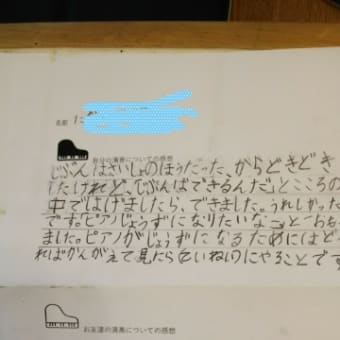 名前 た
自分の演奏についての感想
じぶんはさいしょのほうだったからどきどき
したけれど、「じぶんはできるんだ」とこころの
中ではげましたら、できました。うれしかった
です。「ピアノじょうずになりたいな」とおもい
ました。ピアノがじょうずになるためにはど
ればかんがえて見たら「ていねい」にやることです
お友達の演奏についての感想